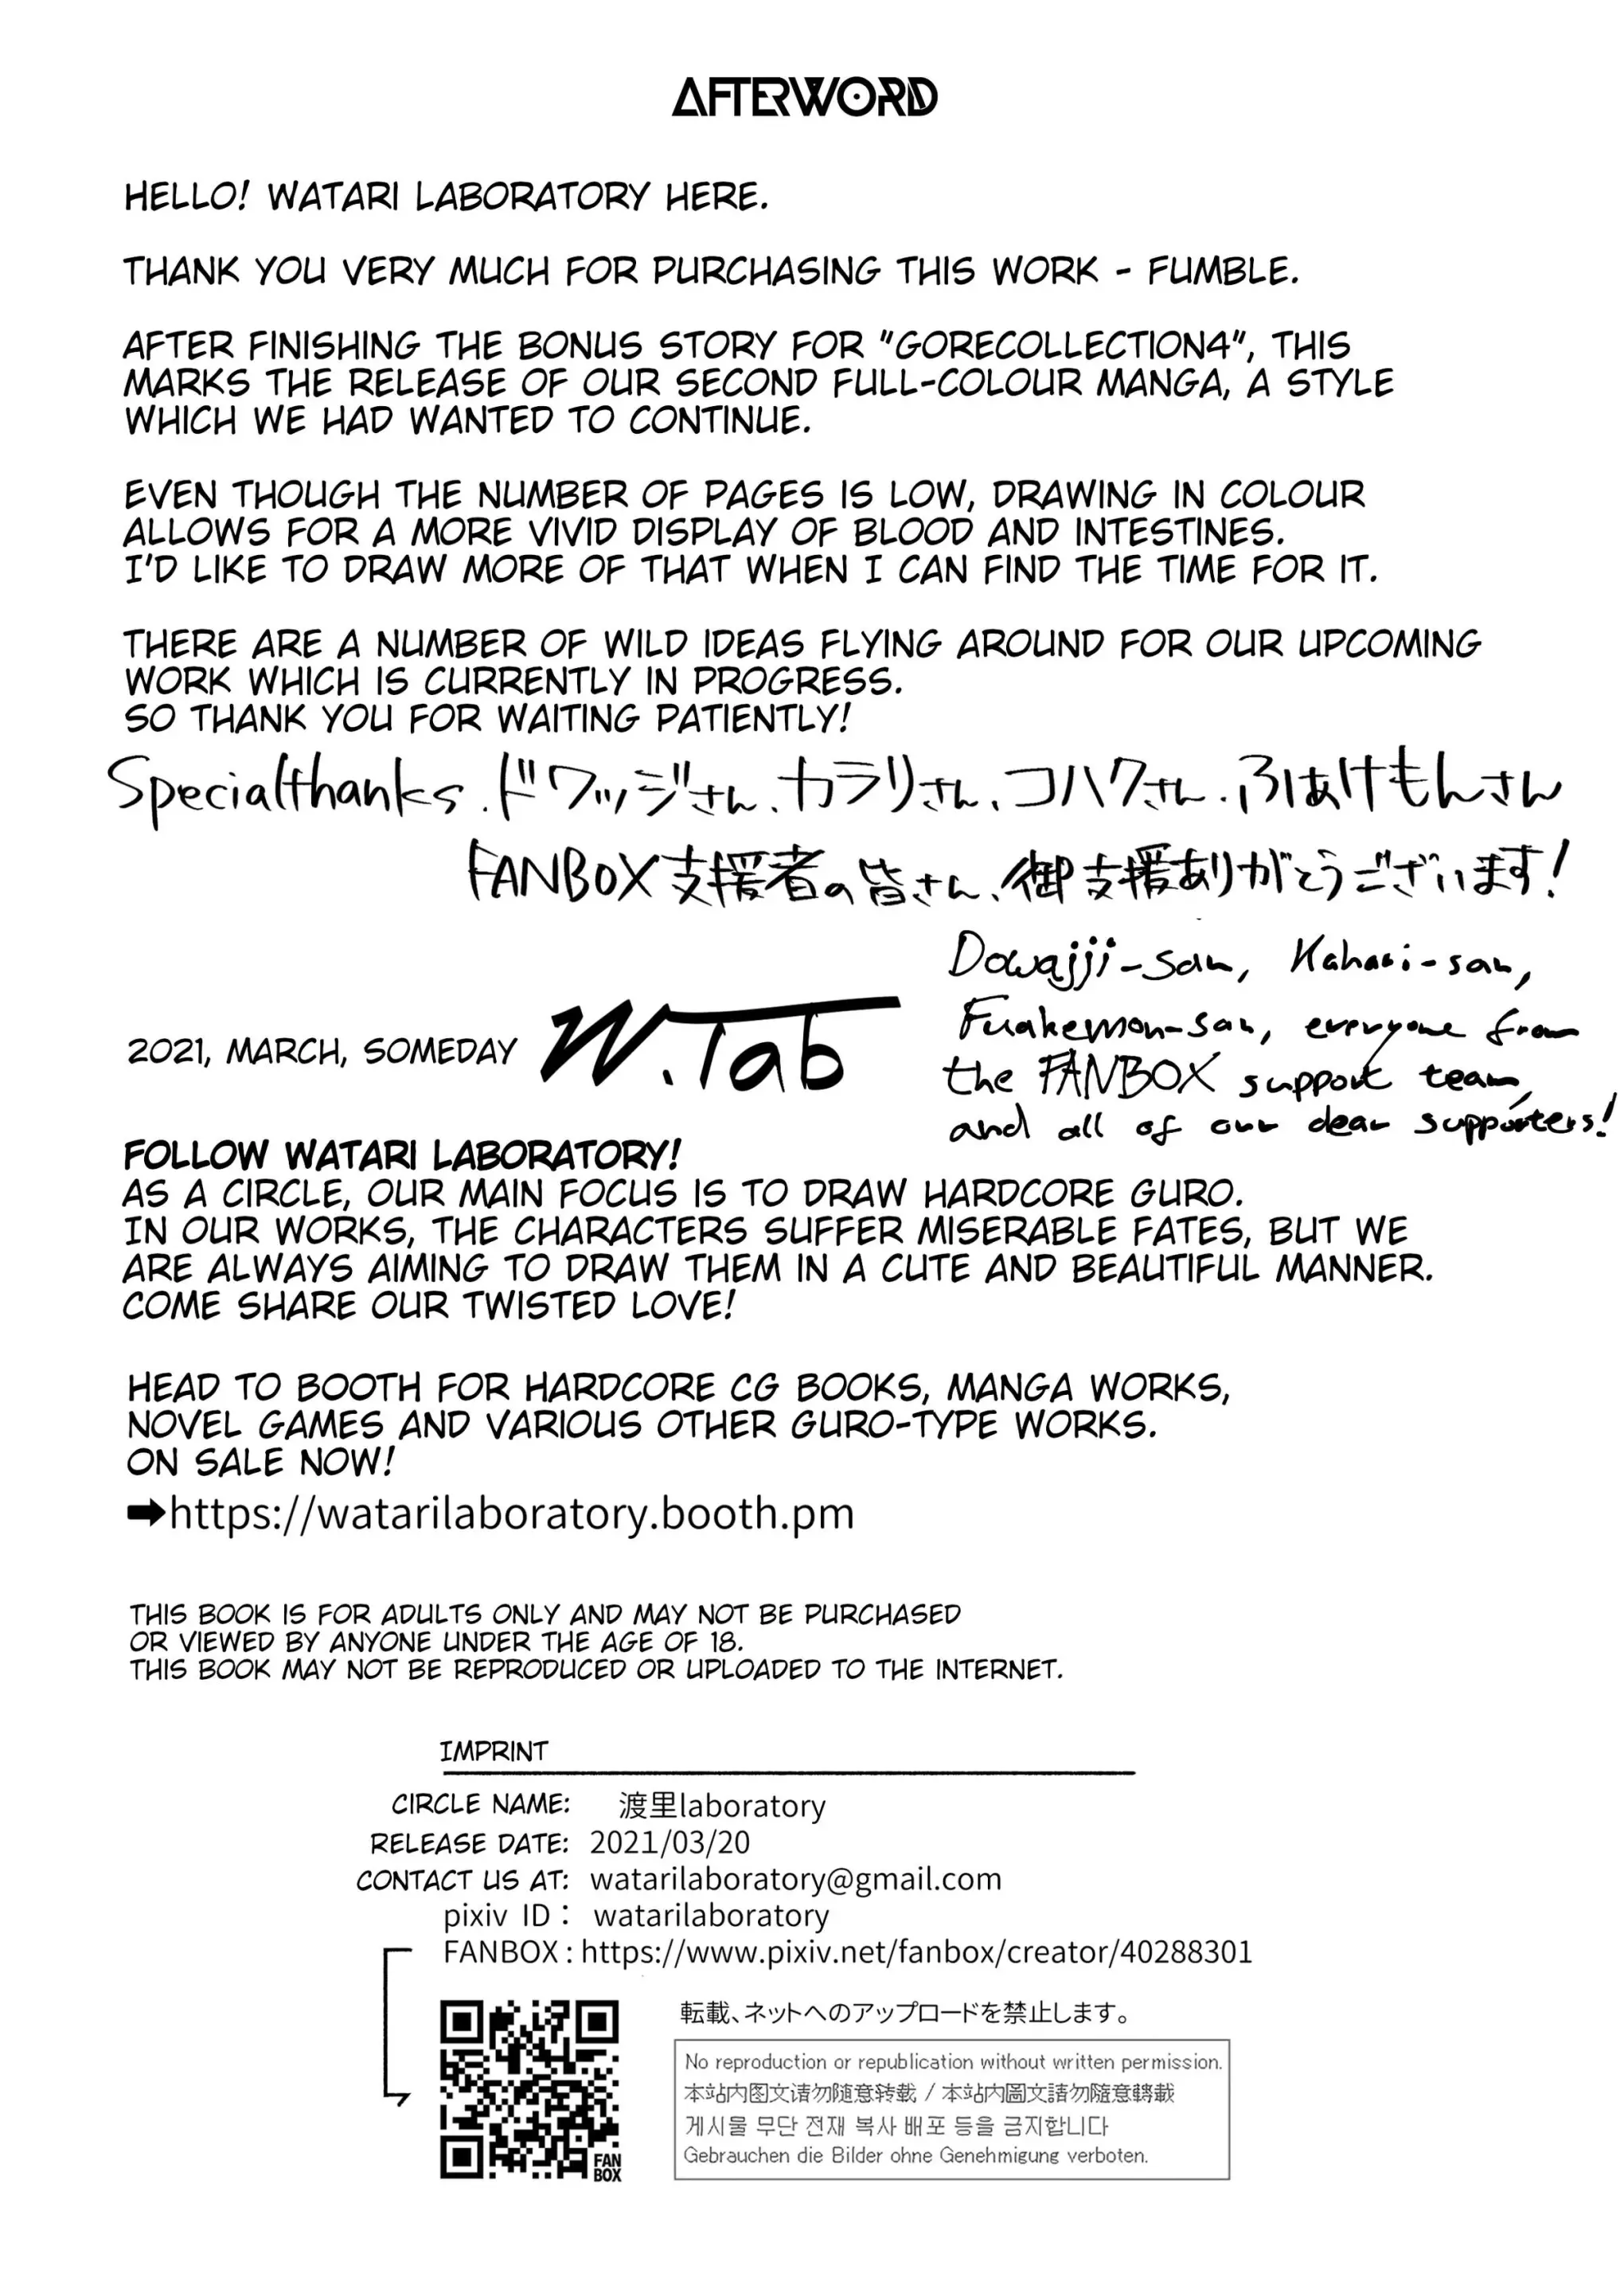 AFTERWORD
HELLO! WATARI LABORATORY HERE.
THANK YOU VERY MUCH FOR PURCHASING THIS WORK - FUMBLE.
AFTER FINISHING THE BONUS STORY FOR "GORECOLLECTION4", THIS
MARKS THE RELEASE OF OUR SECOND FULL-COLOUR MANGA, A STYLE
WHICH WE HAD WANTED TO CONTINUE.
EVEN THOUGH THE NUMBER OF PAGES IS LOW, DRAWING IN COLOUR
ALLOWS FOR A MORE VIVID DISPLAY OF BLOOD AND INTESTINES.
I'D LIKE TO DRAW MORE OF THAT WHEN I CAN FIND THE TIME FOR IT.
THERE ARE A NUMBER OF WILD IDEAS FLYING AROUND FOR OUR UPCOMING
WORK WHICH IS CURRENTLY IN PROGRESS.
SO THANK YOU FOR WAITING PATIENTLY!
Specialthanks.ドワッジさん、カラリさん、コハクさん.ふぁけもんさん
FANBOX支援者の皆さん、御支援ありがとうございます!
Dowajji-san, Kahari-san,
Fuakemon-san, everyone from
the FANBOX support team,
and all of our dear supporters!
2021, MARCH, SOMEDAY W.Tab
FOLLOW WATARI LABORATORY!
AS A CIRCLE, OUR MAIN FOCUS IS TO DRAW HARDCORE GURO.
IN OUR WORKS, THE CHARACTERS SUFFER MISERABLE FATES, BUT WE
ARE ALWAYS AIMING TO DRAW THEM IN A CUTE AND BEAUTIFUL MANNER.
COME SHARE OUR TWISTED LOVE!
HEAD TO BOOTH FOR HARDCORE CG BOOKS, MANGA WORKS,
NOVEL GAMES AND VARIOUS OTHER GURO-TYPE WORKS.
ON SALE NOW!
➡https://watarilaboratory.booth.pm
THIS BOOK IS FOR ADULTS ONLY AND MAY NOT BE PURCHASED
OR VIEWED BY ANYONE UNDER THE AGE OF 18.
THIS BOOK MAY NOT BE REPRODUCED OR UPLOADED TO THE INTERNET.
IMPRINT
CIRCLE NAME: 渡里laboratory
RELEASE DATE: 2021/03/20
CONTACT US AT: watarilaboratory@gmail.com
pixiv ID： watarilaboratory
FANBOX : https://www.pixiv.net/fanbox/creator/40288301
FAN
BOX
転載、ネットへのアップロードを禁止します。
No reproduction or republication without written permission.
本站内图文请勿随意转载 / 本站内圖文請勿隨意轉載
게시물 무단 전재 복사 배포 등을 금지합니다
Gebrauchen die Bilder ohne Genehmigung verboten.